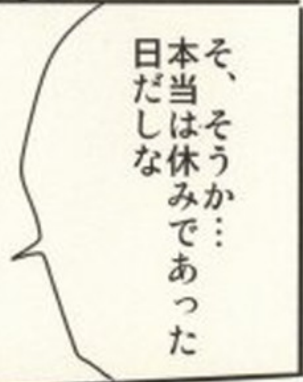 そ、そうか…
本当は休みであった
日だしな